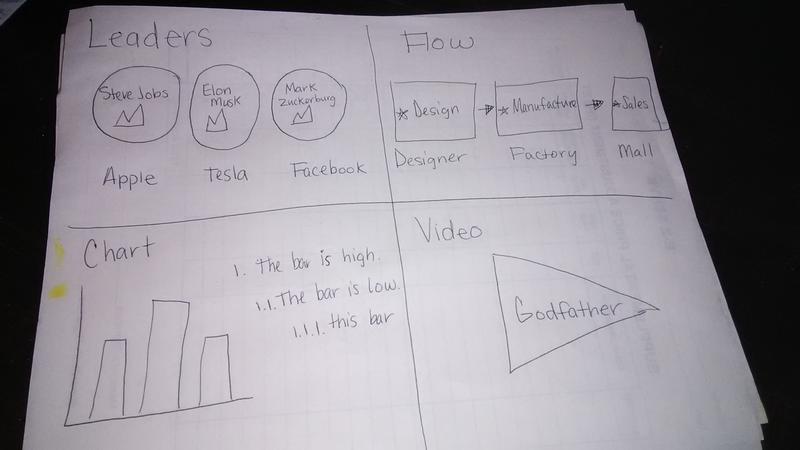 Leaders
Steve Jobs
Elon
Musk
Mark
Zuckerburg
Apple
Tesla
Facebook
Flow
Design
Manufacture
Sales
Designer
Factory
Mall
Chart
1. The bar is high.
1.1. The bar is low.
1.1.1. this bar
Video
Godfather